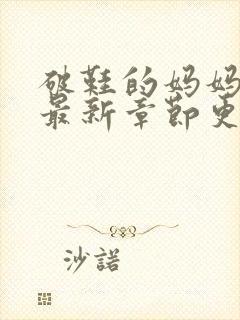 破鞋的妈妈
最新章節更
沙諾